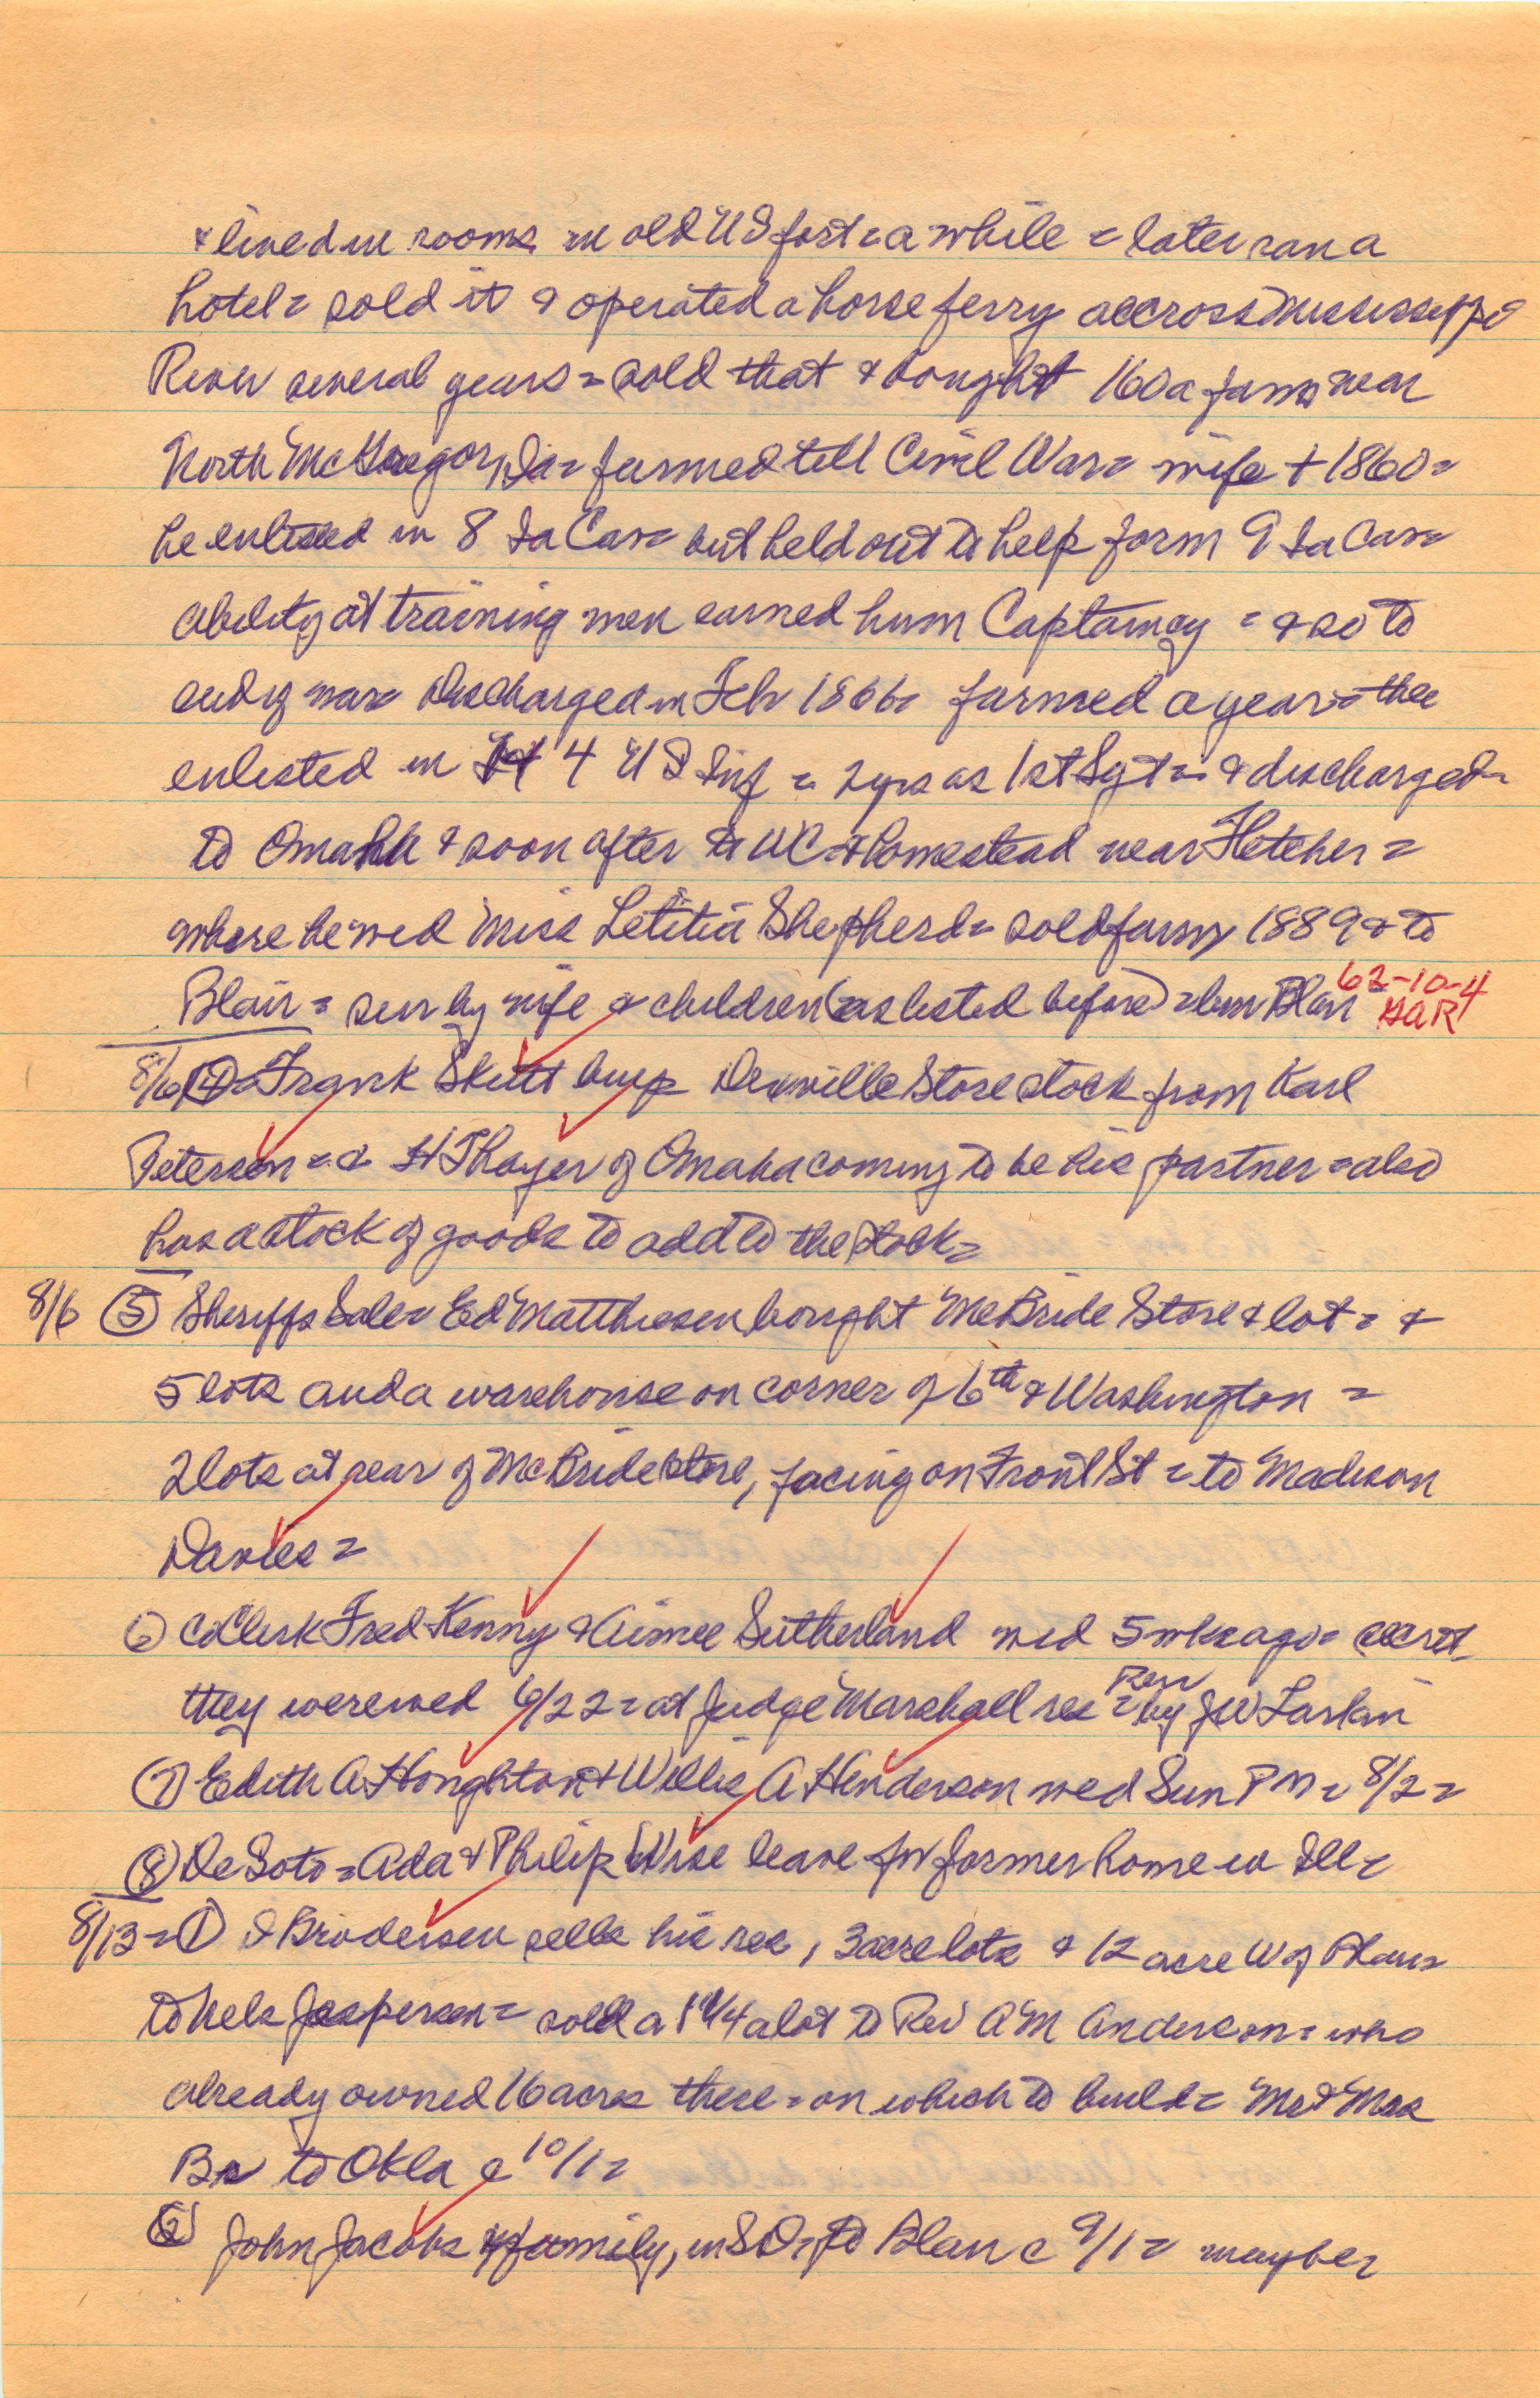 & lived in rooms in old US fort = a while = later ran a
hotel = sold it & operated a horse ferry accross Mississippi
River several years = sold that & bought 160a farm near
North McGregor, Ia = farmed till Civil War = wife + 1860 =
he enlisted in 8 Ia Cav = but held out to help form 9 Ia Cav =
ability at training men earned him Captaincy = & so to
end of war = discharged in Feb 1866 = farmed a year = then
enlisted in 4 US Inf = 2 yrs as 1st Sgt = & discharged =
to Omaha & soon after to WC = & homestead near Fletcher =
where he wed Miss Letitia Shepherd = sold farm 1889 & to
Blair = sur by wife & children (as listed before) = bur Blair 62-10-4
GAR
8/6 (4) = Frank Skutt buys Dexville Store stock from Karl
Peterson = & H Thayer of Omaha coming to be his partner = also
has a stock of goods to add to the stock =
8/6 (5) Sheriffs Sale = Ed Matthiesen bought McBride Store & lot = &
5 lots and a warehouse on corner of 6th & Washington =
2 lots at rear of McBride store, facing on Front St = to Madison
Davies =
(6) CoClerk Fred Kenny & Aimee Sutherland wed 5 wks ago = secret
they were wed 6/22 = at Judge Marshall res = Rev by JW Larkin
(7) Edith A Houghton & Willis A Henderson wed Sun PM = 8/2 =
(8) DeSoto = Ada & Philip Wise leave for former home in Ill =
8/13 = (1) I Brodersen sells his res, 3 acre lots & 12 acre W of Blair =
to Nels Jesperson = sold a 1 1/4 a lot to Rev AM Anderson = who
already owned 16 acres there = on which to build = Mr & Mrs
Br to Okla c 10/1 =
(2) John Jacobs & family, in SD = to Blair c 9/1 = maybe =